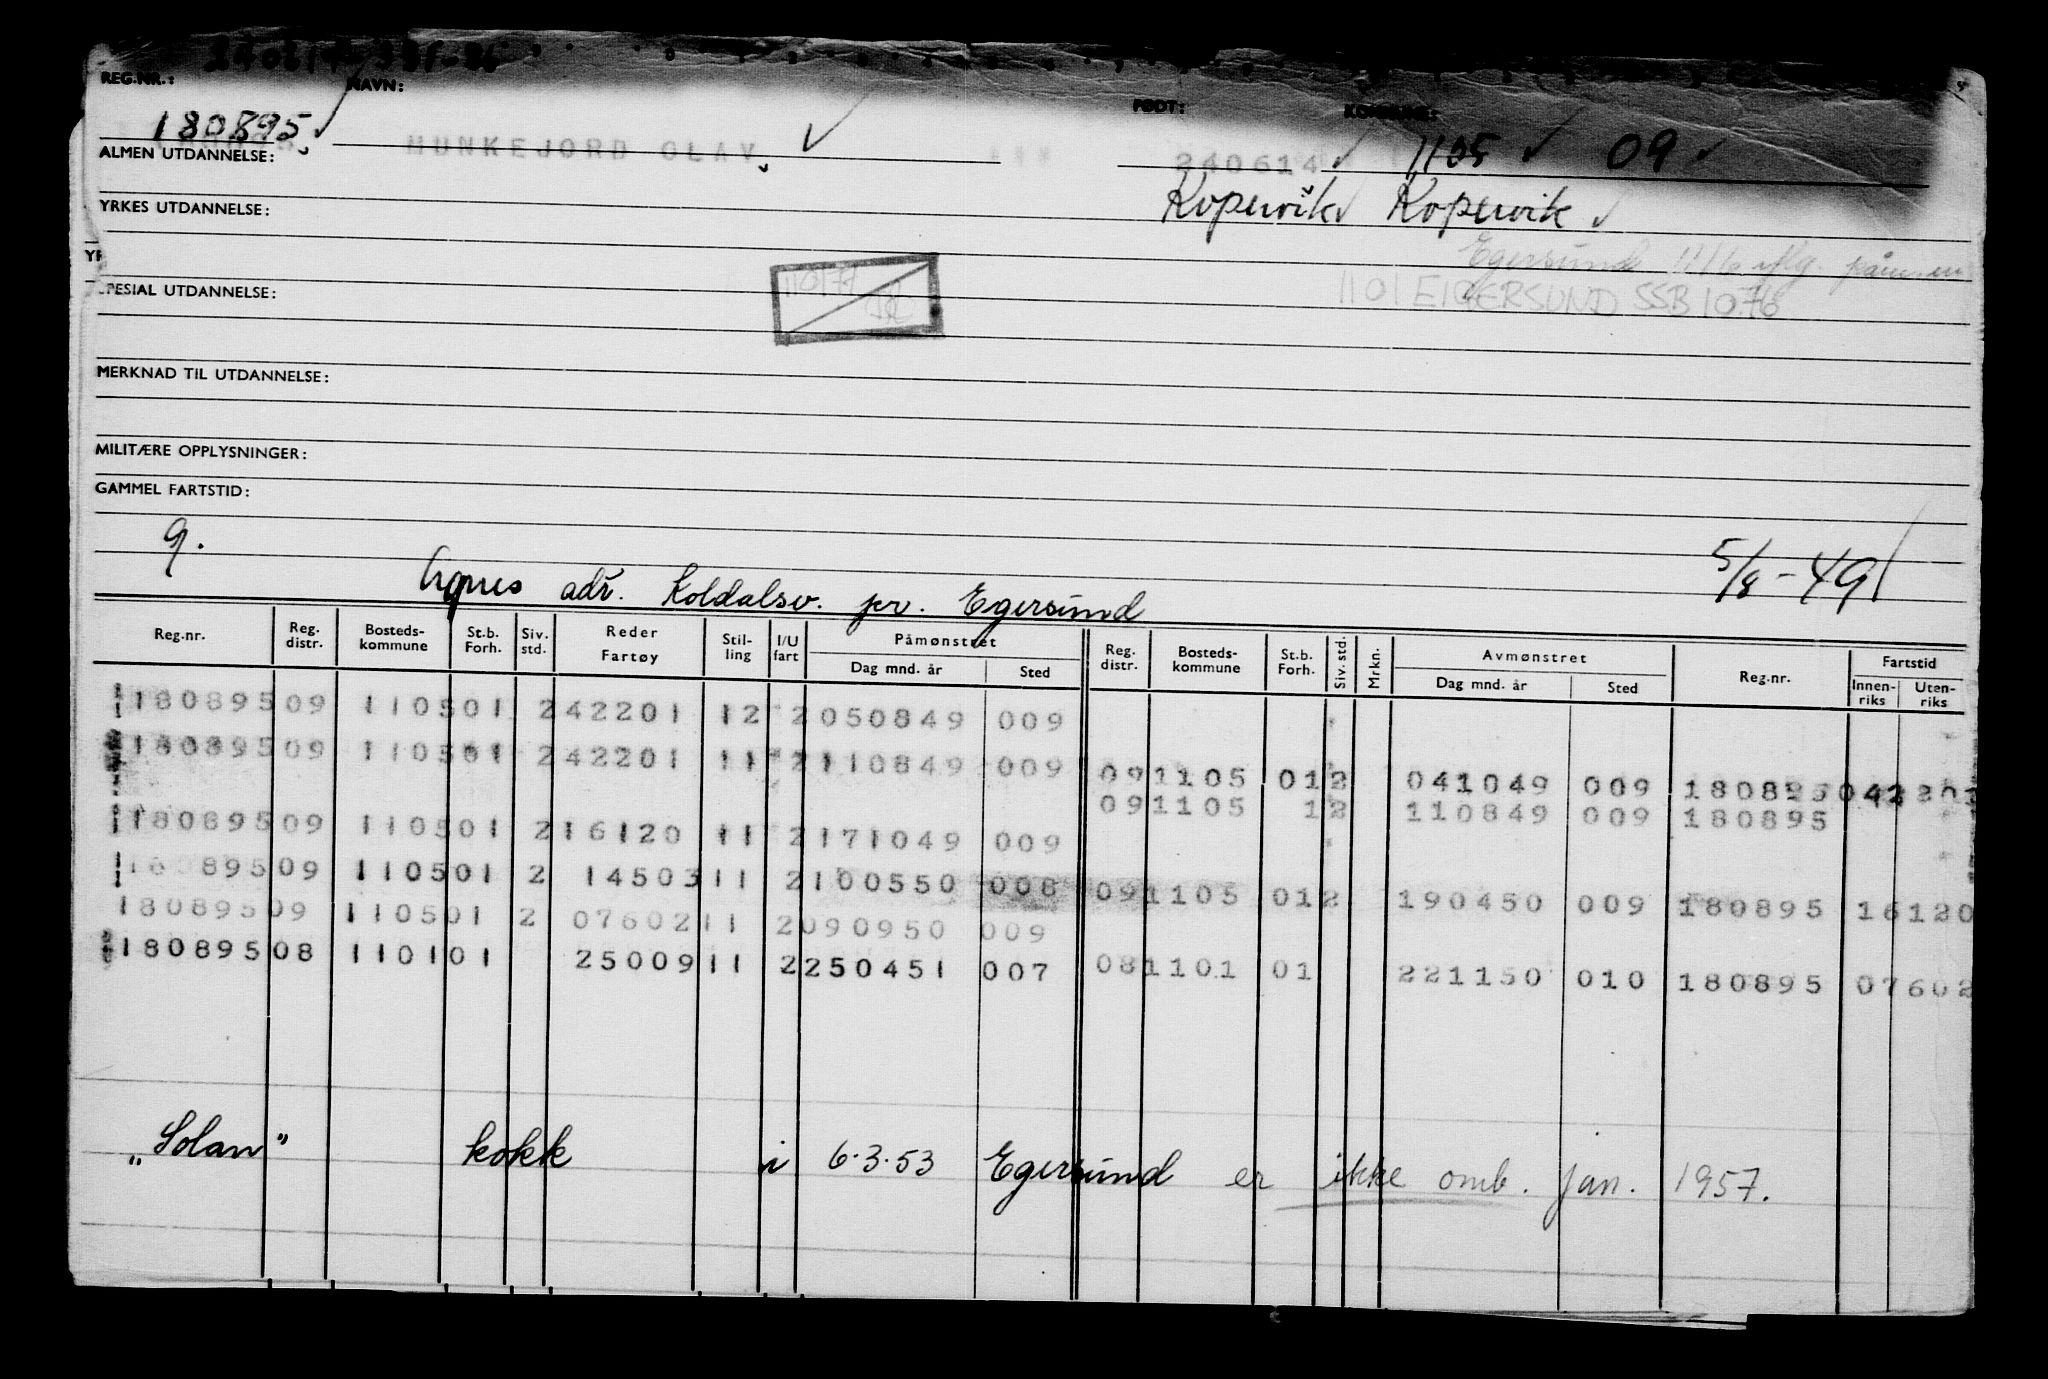 REG.NR.: NAVN: FØDT: KOMMUNE:
180895 MUNKEJORD OLAV 240614 1105 09
ALMEN UTDANNELSE:
Kopervik Kopervik
YRKES UTDANNELSE:
Egersund
SPESIAL UTDANNELSE:
1101 EIGERSUND SSB 1076
MERKNAD TIL UTDANNELSE:
MILITÆRE OPPLYSNINGER:
GAMMEL FARTSTID:
9.
5/8-49
adr. Koldalsv. pr. Egersund
Reg.nr. Reg. distr. Bosteds-kommune St.b. Forh. Siv. std. Reder Fartøy Stil-ling I/U fart Påmønstret Dag mnd. år Sted Reg. distr. Bosteds-kommune St.b. Forh. Siv. std. Mrkn. Avmønstret Dag mnd. år Sted Reg.nr. Fartstid Innen-riks Uten-riks
180895 09 1105 01 2 42201 12 2 050849 009
180895 09 1105 01 2 42201 11 2 110849 009
09 1105 01 2 041049 009 180895
09 1105 1 2 110849 009 180895
180895 09 1105 01 2 16120 11 2 171049 009
180895 09 1105 01 2 14503 11 2 100550 008
09 1105 01 2 190450 009 180895 16120
180895 09 1105 01 2 07602 11 2 090950 009
180895 08 1101 01 25009 11 2 250451 007
08 1101 01 221150 010 180895 07602
"Solan" kokk i 6.3.53 Egersund er ikke omb. jan. 1957.